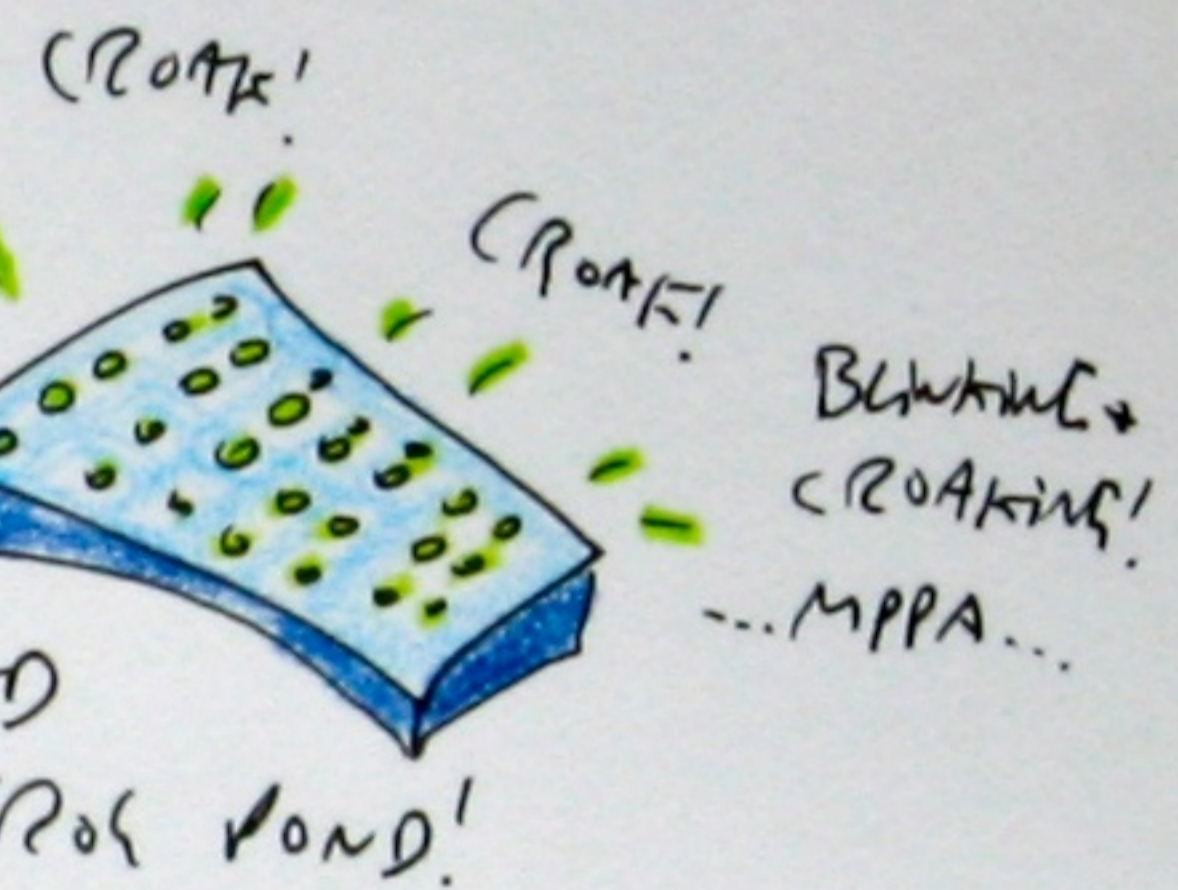 CROAK!
CROAK!
BLINKING +
CROAKING!
...MPPA...
D
ROG POND!